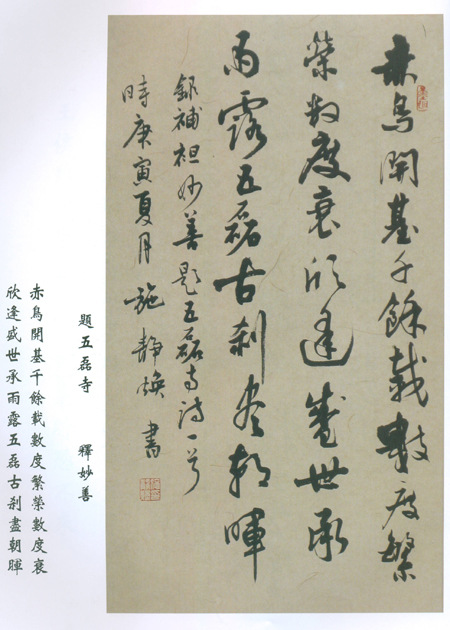 赤烏開基千餘載數度繁
榮數度衰欣逢盛世承
雨露五磊古刹盡朝暉
錄補袒妙善題五磊寺詩一首
時庚寅夏月施靜焕書
題五磊寺 釋妙善
赤烏開基千餘載數度繁榮數度衰
欣逢盛世承雨露五磊古刹盡朝暉